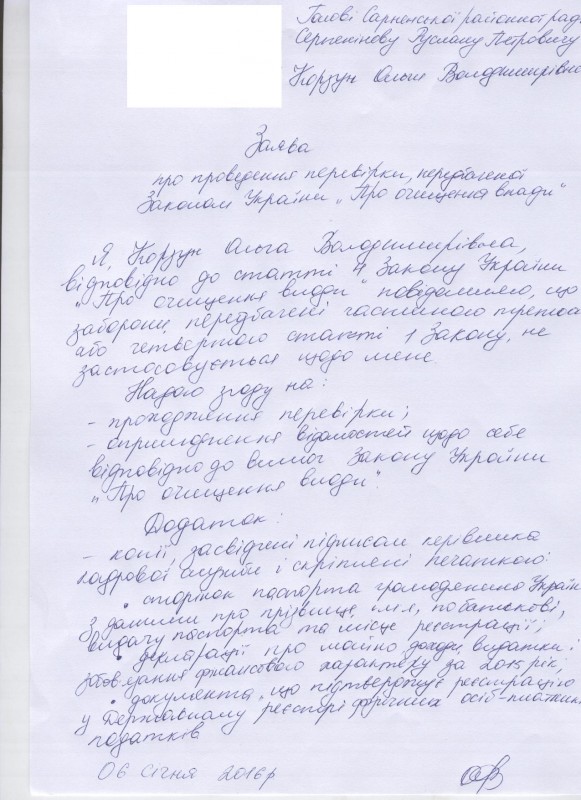 Голові Сарненської районної рад
Серпенінову Руслану Петровичу
Корзун Ольги Володимирівна
Заява
про проведення перевірки, передбаченої
Законом України „Про очищення влади“
Я, Корзун Ольга Володимирівна,
відповідно до статті 4 Закону України
„Про очищення влади“ повідомляю, що
заборони, передбачені частиною третьо
або четвертою статті 1 Закону, не
застосовується щодо мене.
Надаю згоду на:
- проходження перевірки;
- оприлюднення відомостей щодо себе
відповідно до вимог Закону України
„Про очищення влади“.
Додаток:
- копії, засвідчені підписом керівника
кадрової служби і скріплені печаткою:
• сторінок паспорта громадянина Україн
з даними про прізвище, ім'я, по батькові,
видачу паспорта та місце реєстрації;
• декларації про майно, доходи, видатки і
зобов'язання фінансового характеру за 2015 рік;
• документа, що підтверджує реєстрацію
у Державному реєстрі фізичних осіб-платни
податків
06 січня 2016р